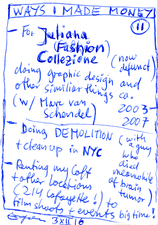 WAYS I MADE MONEY
11
- For Juliana
(Fashion)
Collezione (now defunct co.
doing graphic design and
other similier things
(w/ Marc van Schendel) 2003-2007
- Doing DEMOLITION
+ clean up in NYC
(with a guy who died meanwhile of brain tumor)
- Renting my loft
+ other locations
(214 Lafayette!) to
film shoots + events big time!
3 XII 16